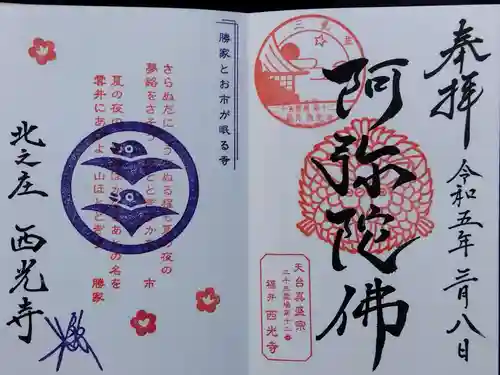 奉拝
令和五年三月八日
阿弥陀佛
天台真盛宗
二十五霊場第十二番
福井 西光寺
勝家とお市が眠る寺
さらぬだに
ぬる程も夏の夜の
夢路をさそふ
市
夏の夜の
あとの名を
雲井にあげよ山ほととぎす
勝家
北之庄 西光寺